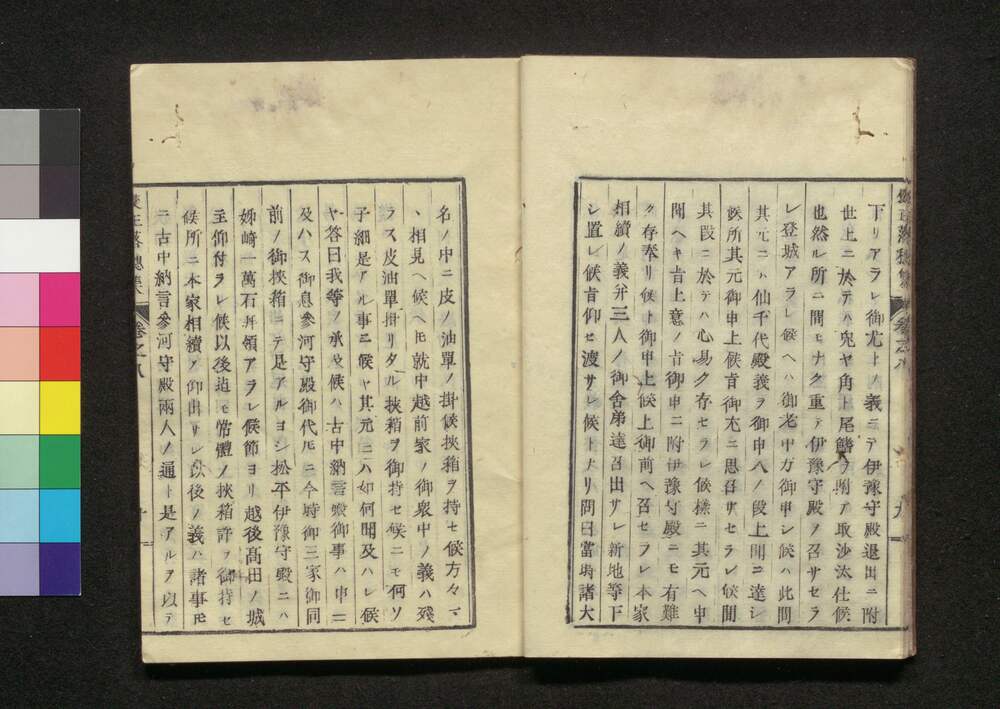 下リアラレ御尤トノ義ニテ伊豫守殿退出ニ附
世上ニ於テハ兎ヤ角ト尾鰭ヲ附ケ取沙汰仕候
也然ル所ニ間モナク重テ伊豫守殿ヲ召サセラ
レ登城アラレ候ヘハ御老中ガ御申シ候ハ此間
其元ニハ仙千代殿義ヲ御申ヘノ段上聞ニ達シ
候所其元御申上候旨御尤ニ思召サセラレ候間
其段ニ於テハ心易ク存セラレ候樣ニ其元ヘ申
聞ヘキ旨上意ノ旨御申ニ附伊豫守殿ニモ有難
ク存奉リ候ト御申上候上御前ヘ召セラレ本家
相續ノ義并三人ノ御舍弟達召出サレ新地等下
シ置レ候旨仰セ渡サレ候トナリ問曰當時諸大
名ノ中ニ皮ノ油單ノ掛候挾箱ヲ持セ候方々マ
ヽ相見ヘ候ヘ𪜈就中越前家ノ御衆中ノ義ハ殘
ラス皮油單掛リタル挾箱ヲ御持セ候ニモ何ソ
子細是アル事ニ候ヤ其元ニハ如何聞及ハレ候
ヤ答曰我等ノ承及候ハ古中納言殿御事ハ申ニ
及ハス御息參河守殿御代𪜈ニ今時御三家御同
前ノ御挾箱ニテ是アルヨシ松平伊豫守殿ニハ
姊崎一萬石拜領アラレ候節ヨリ越後髙田ノ城
主仰付ラレ候以後迠モ常體ノ挾箱許ヲ御持セ
候所ニ本家相續ヲ仰出サレ以後ノ義ハ諸事𪜈
ニ古中納言參河守殿兩人ノ通ト是アルヲ以テ
卷之八